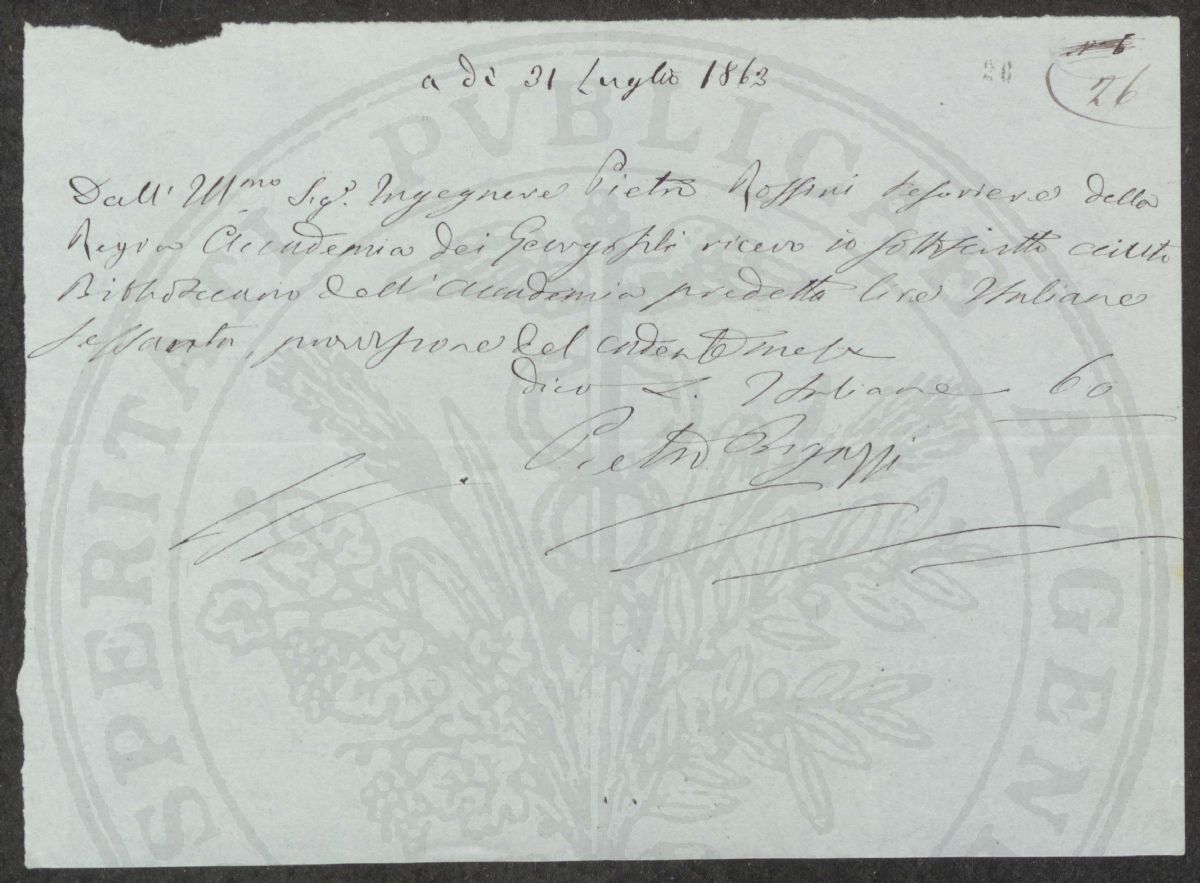 N° 6
20
26
a dì 31 Luglio 1863
Dall' Ill.mo Sig.r Ingegnere Pietro Rossini Tesoriere della
Regia Accademia dei Georgofili ricevo io sottoscritto
Bibliotecario dell'Accademia predetta lire Italiane
sessanta, provvisione del cadente mese
dico L. Italiane 60
Pietro Bigazzi
PROSPERITATI PVBLICAE AVGEN